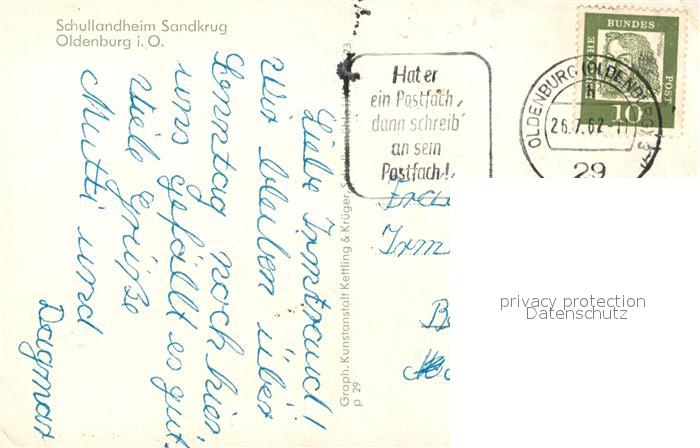 Schullandheim Sandkrug
Oldenburg i. O.
Liebe Irmtraud!
Wir bleiben über
Sonntag noch hier,
uns gefällt es gut.
Viele Grüße
Mutti und
Dagmar
Graph. Kunstanstalt Kettling & Krüger,
p 29
Hat er
ein Postfach,
dann schreib'
an sein
Postfach!
DEUTSCHE BUNDES POST
10
OLDENBURG (OLDENB)
26.7.62.-11
29
Irm
privacy protection
Datenschutz